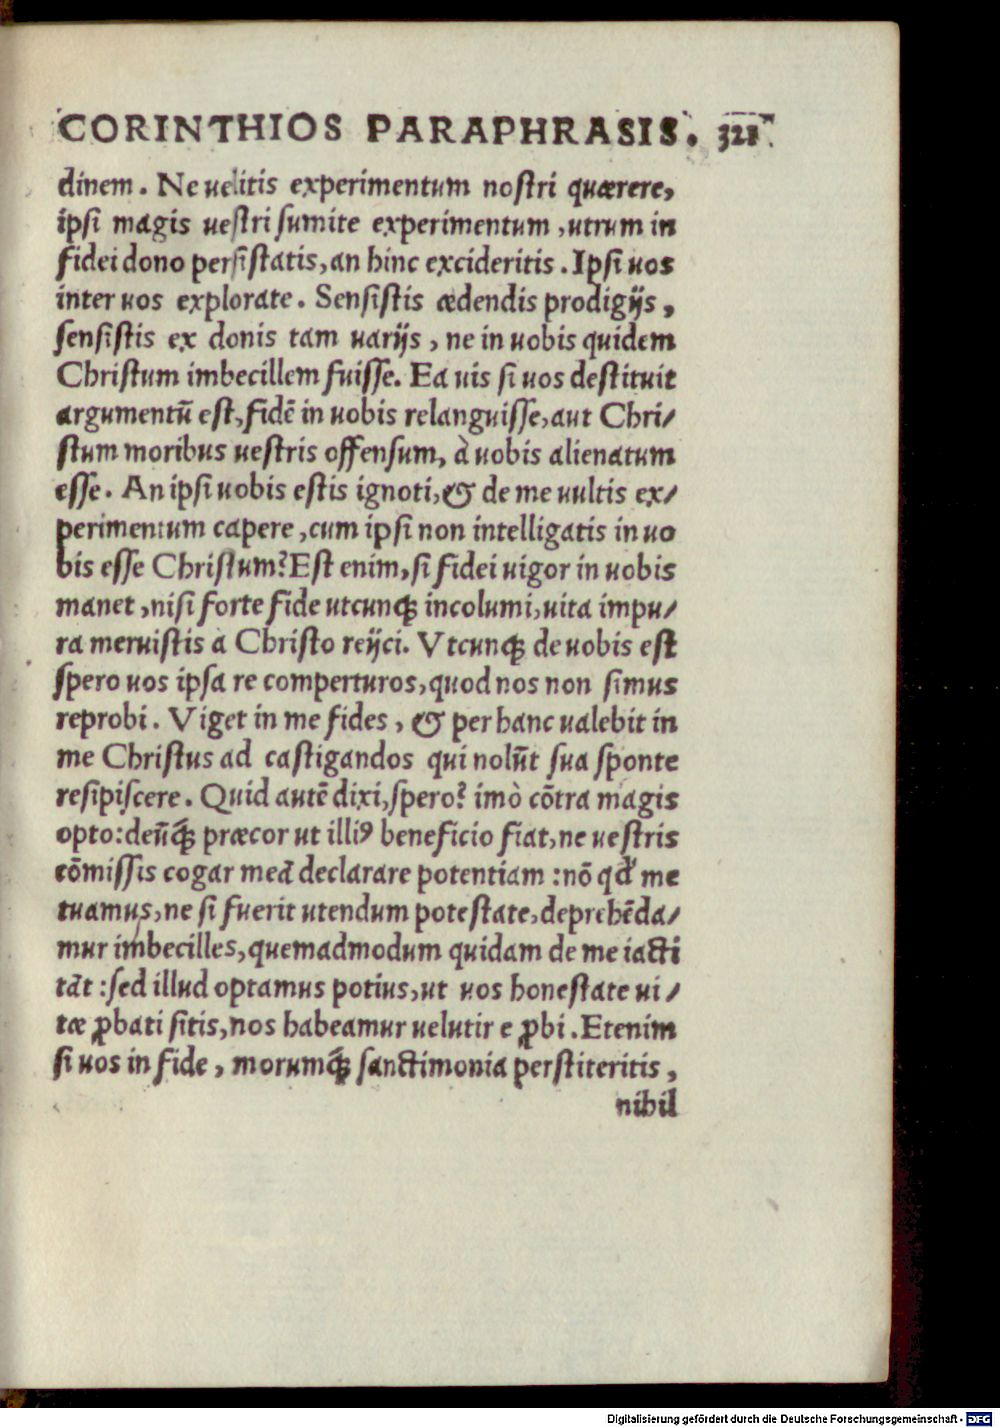 CORINTHIOS PARAPHRASIS. 321.
dinem. Ne uelitis experimentum nostri quærere,
ipsi magis uestri sumite experimentum, utrum in
fidei dono persistatis, an hinc excideritis. Ipsi uos
inter uos explorate. Sensistis ædendis prodigijs,
sensistis ex donis tam uarijs, ne in uobis quidem
Christum imbecillem fuisse. Ea uis si uos destituit
argumentū est, fidē in uobis relanguisse, aut Chri/
stum moribus uestris offensum, à uobis alienatum
esse. An ipsi uobis estis ignoti, & de me uultis ex/
perimentum capere, cum ipsi non intelligatis in uo
bis esse Christum? Est enim, si fidei uigor in uobis
manet, nisi forte fide utcunqꝫ incolumi, uita impu/
ra meruistis a Christo reijci. Vtcunqꝫ de uobis est
spero uos ipsa re comperturos, quod nos non simus
reprobi. Viget in me fides, & per hanc ualebit in
me Christus ad castigandos qui nolūt sua sponte
resipiscere. Quid autē dixi, spero? imò cōtra magis
opto: deūqꝫ præcor ut illiꝰ beneficio fiat, ne uestris
cōmissis cogar meā declarare potentiam: nō qđ me
tuamus, ne si fuerit utendum potestate, deprehēda/
mur imbecilles, quemadmodum quidam de me iacti
tāt: sed illud optamus potius, ut uos honestate ui/
tæ ꝓbati sitis, nos habeamur uelutir e ꝓbi. Etenim
si uos in fide, morumqꝫ sanctimonia perstiteritis,
nihil
Digitalisierung gefördert durch die Deutsche Forschungsgemeinschaft - DFG